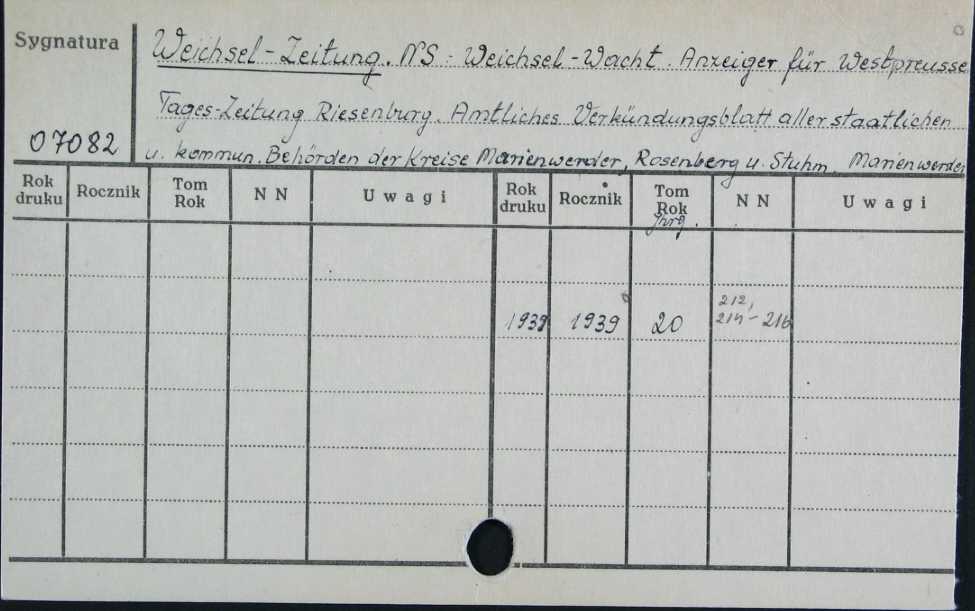 Sygnatura
Weichsel-Zeitung. NS-Weichsel-Wacht. Anzeiger für Westpreusse
Tages-Zeitung Riesenburg. Amtliches Verkündungsblatt aller staatlichen
07082
u. kommun. Behörden der Kreise Marienwerder, Rosenberg u. Stuhm. Marienwerder
Rok druku Rocznik Tom Rok NN Uwagi Rok druku Rocznik Tom Rok NN Uwagi
Jhrg.
212,
1939 1939 20 214-216